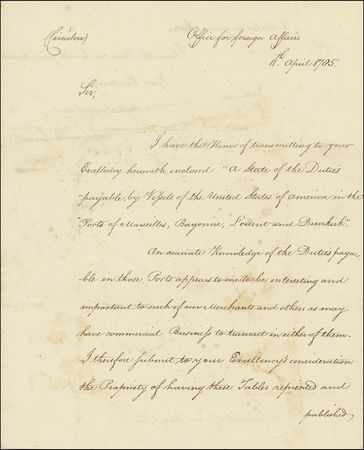 (Circular)
Office for foreign Affairs
11th April 1785.
Sir,
I have the Honor of transmitting to your
Excellency herewith enclosed "a State of the Duties
"payable by Vessels of the United States of america in the
"Ports of Marseilles, Bayonne, L'orient and Dunkirk".
An accurate Knowledge of the Duties paya
ble in those Ports appears to me to be interesting and
important to such of our Merchants and others as may
have commercial Business to transact in either of them.
I therefore submit to your Excellency's consideration
the Propriety of having these Tables reprinted and
published,